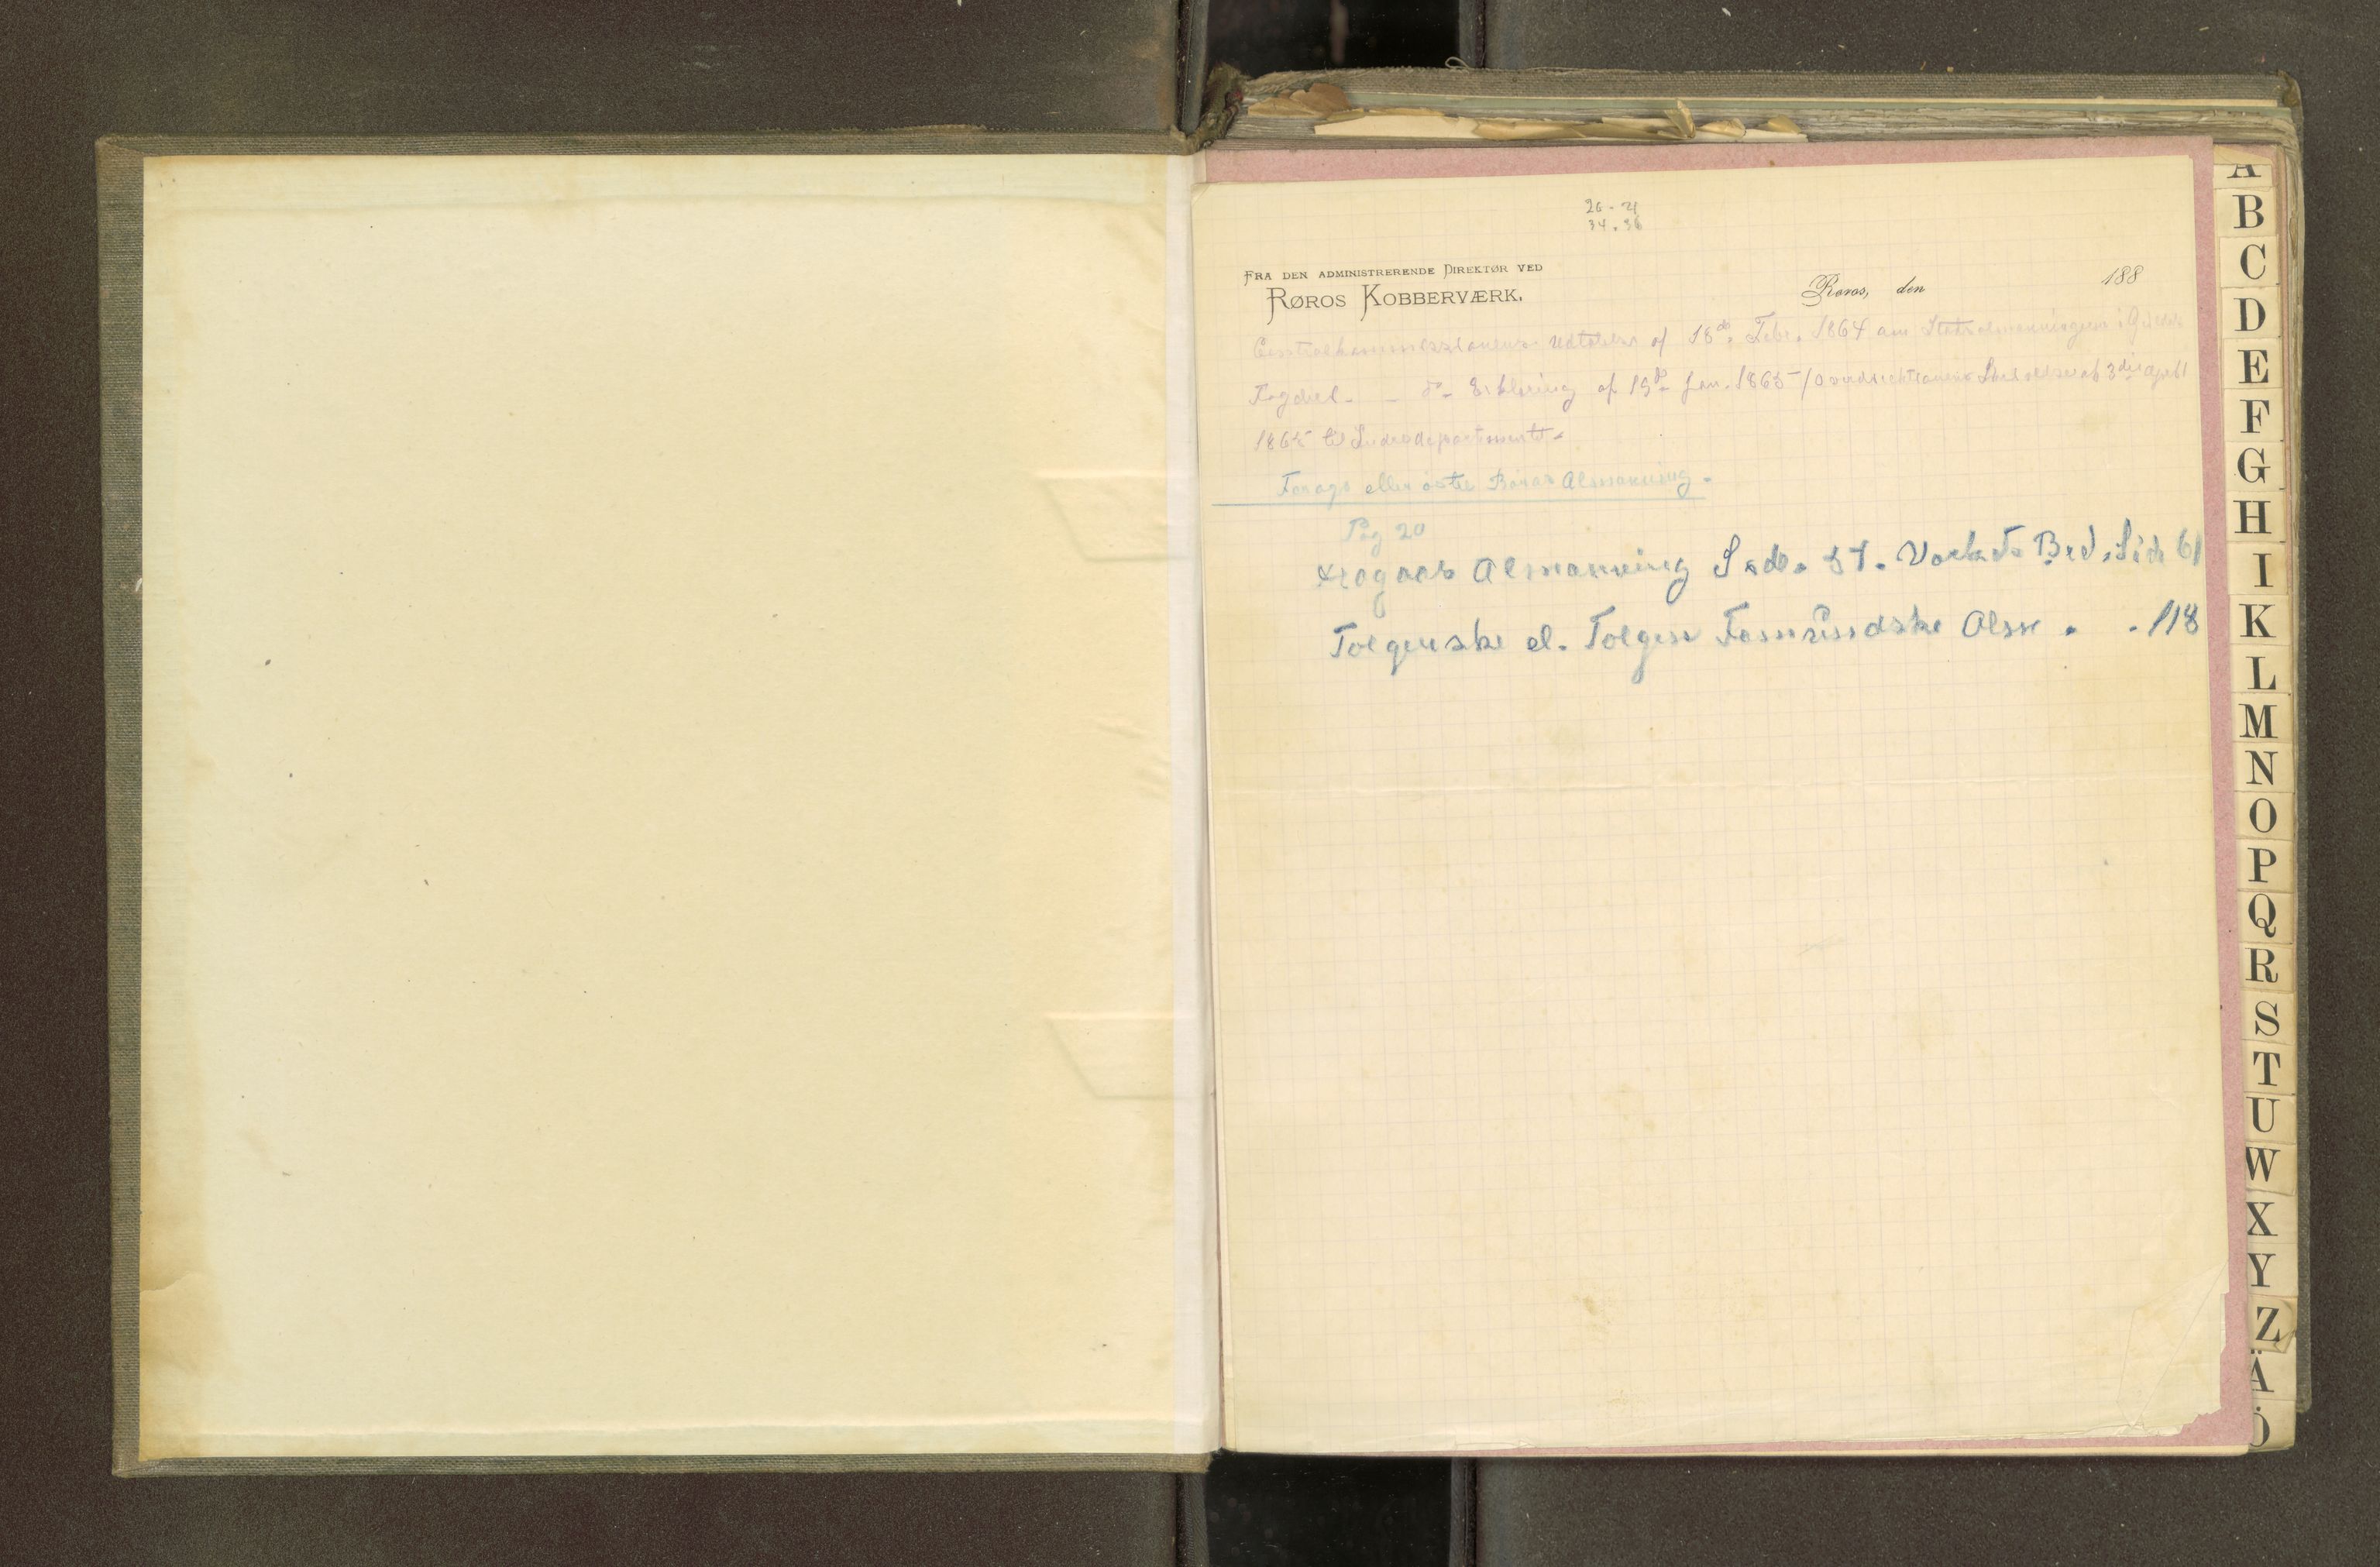 26-21
34.36
FRA DEN ADMINISTRERENDE DIREKTØR VED
RØROS KOBBERVÆRK.
Røros, den 188
Centralkommissionens Udtalelse af 18de Febr. 1864 om Statsalmenningen i
Fogderi - - do- Erklæring af 19de Jan. 1865 / af 3die April
1865 til Indredepartementet.
eller östre Röros Almenning.
Pag 20
Almenning Side 57. Værkets Bed. Side 61
Tolgenske el. Tolgen Famundske Alm . . 118
A
B
C
D
E
F
G
H
I
K
L
M
N
O
P
Q
R
S
T
U
W
X
Y
Z
Ä
Ö